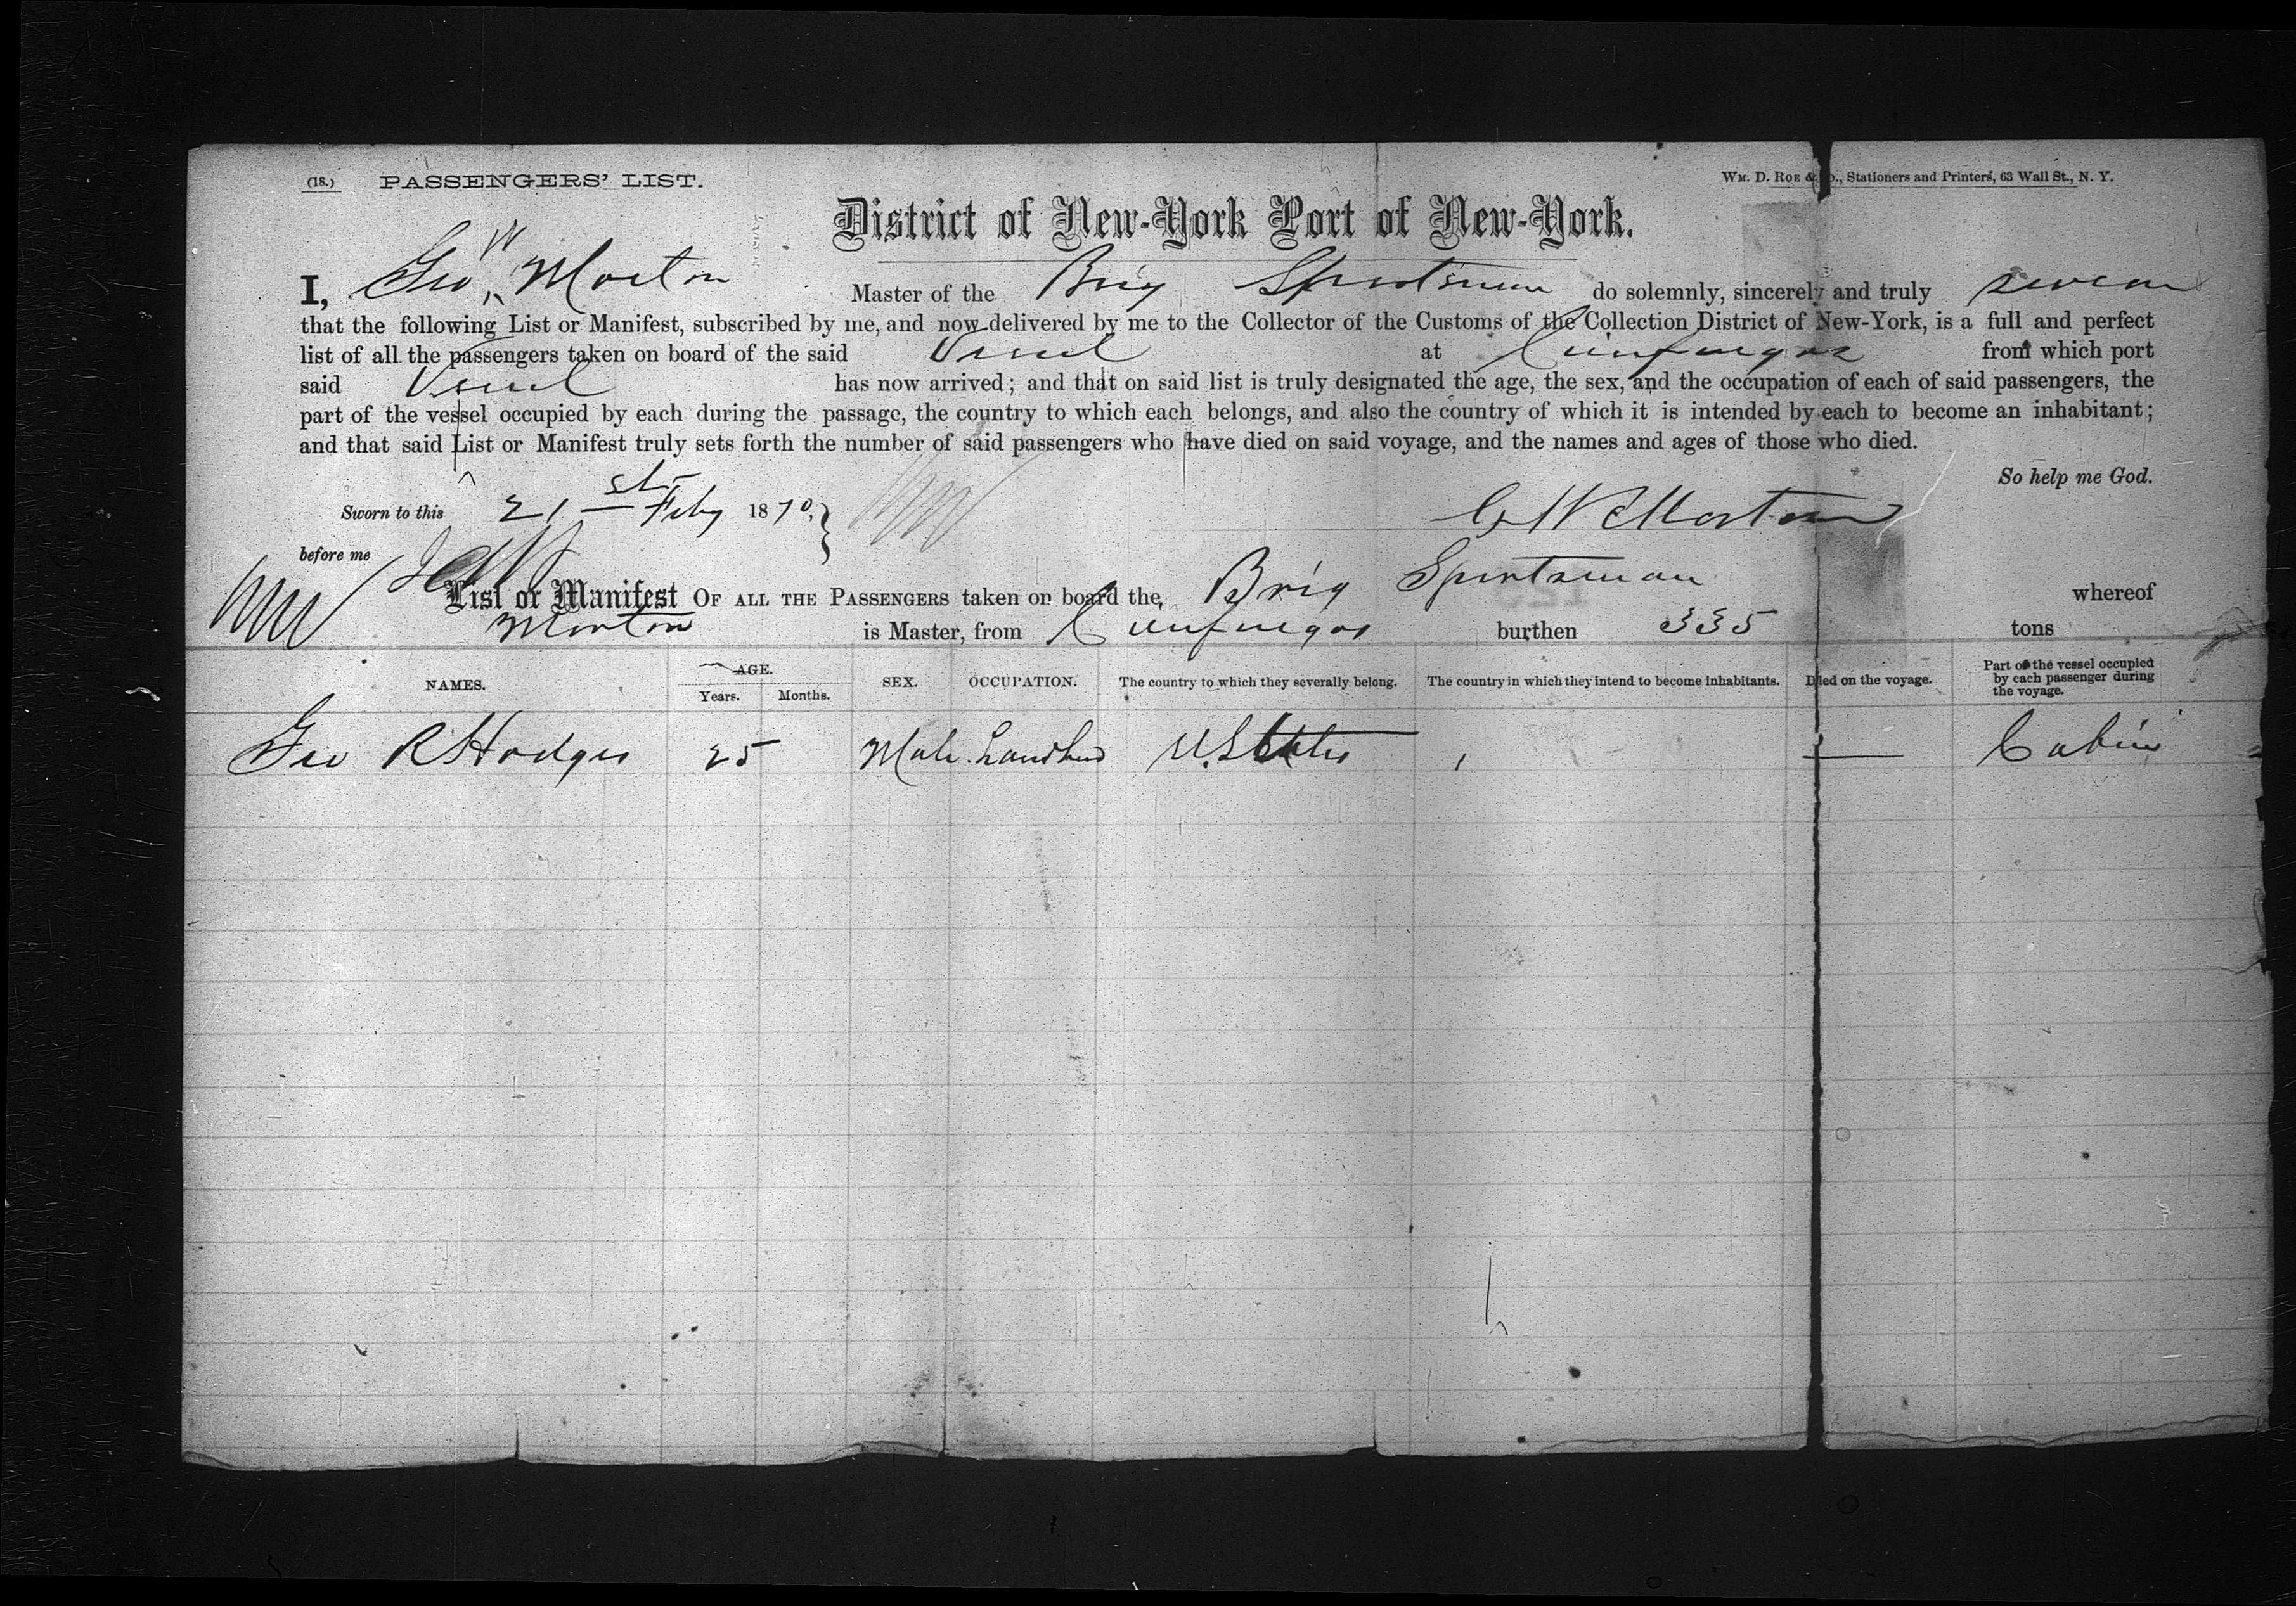 (18.) PASSENGERS' LIST.
WM. D. ROE & Co., Stationers and Printers, 63 Wall St., N. Y.
District of New-York Port of New-York.
I, Geo W Morton Master of the Brig Sportsman do solemnly, sincerely and truly swear
that the following List or Manifest, subscribed by me, and now delivered by me to the Collector of the Customs of the Collection District of New-York, is a full and perfect
list of all the passengers taken on board of the said Vessel at Cienfuegos from which port
said Vessel has now arrived; and that on said list is truly designated the age, the sex, and the occupation of each of said passengers, the
part of the vessel occupied by each during the passage, the country to which each belongs, and also the country of which it is intended by each to become an inhabitant;
and that said List or Manifest truly sets forth the number of said passengers who have died on said voyage, and the names and ages of those who died.
So help me God.
Sworn to this 21st Feby 1870.
G W Morton
before me
List or Manifest OF ALL THE PASSENGERS taken on board the, Brig Sportsman whereof
Morton is Master, from Cienfuegos burthen 335 tons
NAMES. AGE. SEX. OCCUPATION. The country to which they severally belong. The country in which they intend to become inhabitants. Died on the voyage. Part of the vessel occupied by each passenger during the voyage.
Years. Months.
Geo R Hodges 25 Male U. States Cabin